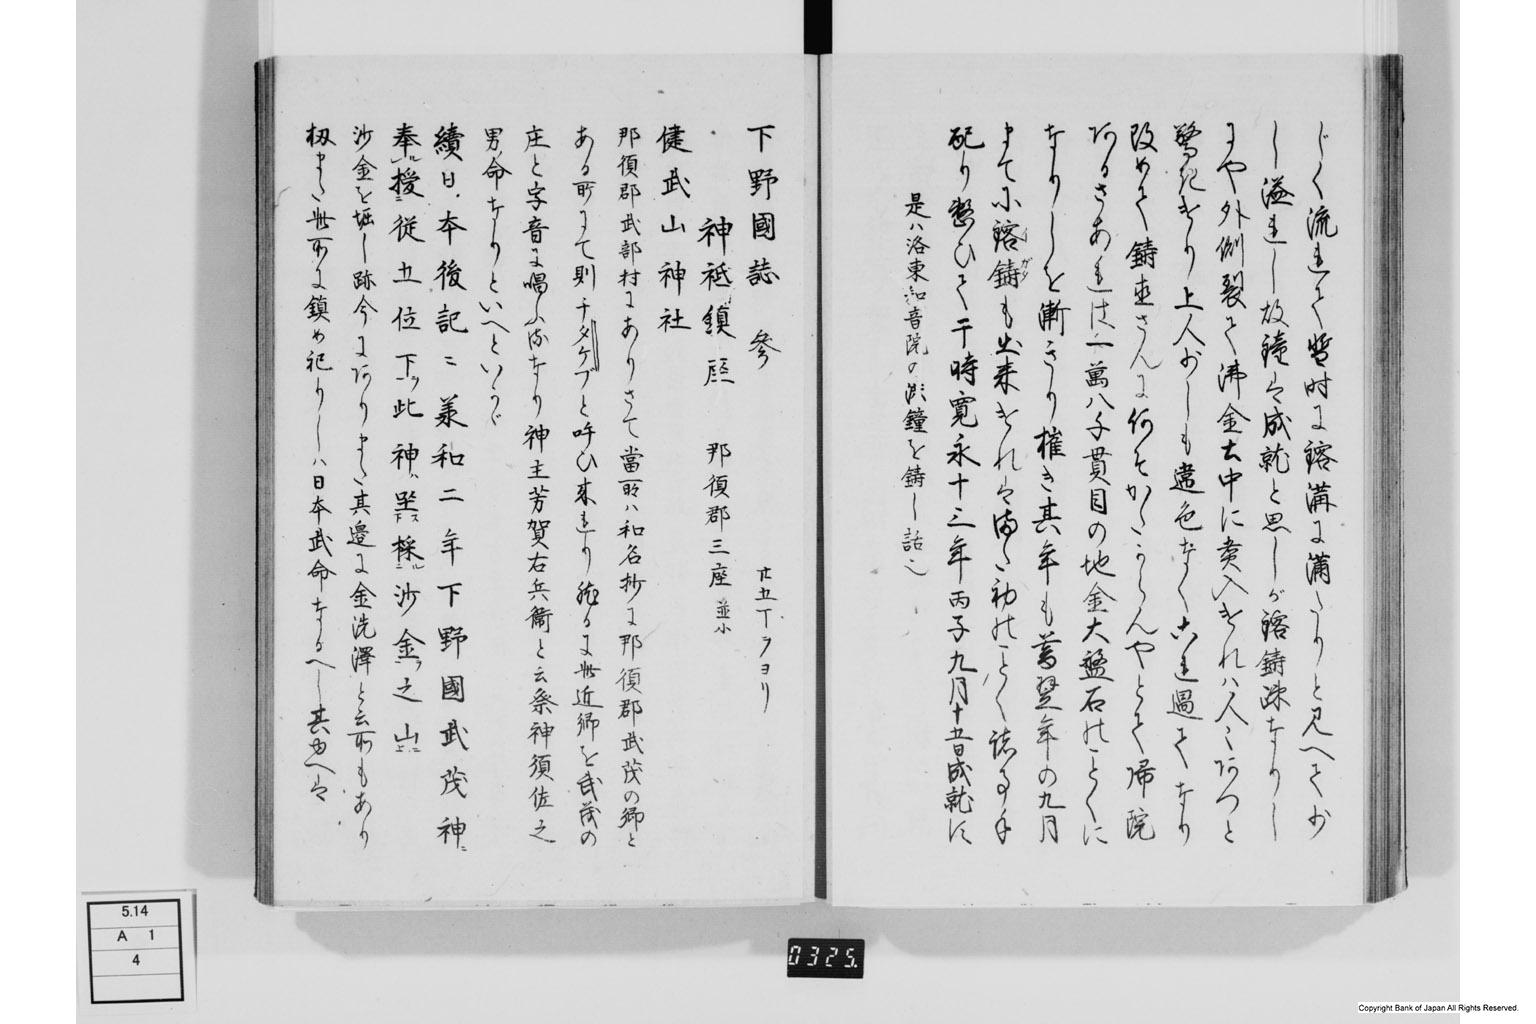 じく流れて暫時に鎔溝に満たりと見へて少
し溢れし故鐘は成就と思しが鎔鋳疎なりし
にや外側裂て沸金土中に費入ければ人々あつと
驚きけり上人少しも違色なく是過てなり
改めて鋳直さんに何そかたからんやとて帰院
あるさあれは一萬八千貫目の地金大盤石のことくに
なりしを漸きり摧き其年も暮翌年の九月
まてに鎔鋳も出来ければ満た初のことく諸事手
配り整ひて于時寛永十三年丙子九月十五日成就に
是ハ洛東知音院の洪鐘を鋳し話也
下野國誌 参
廿五丁ヲヨリ
神祇鎮座 那須郡三座 並小
健武山神社
那須郡武部村にありさて當所ハ和名抄に那須郡武茂の郷と
ある所にて則チタケブと呼ひ来れり然るに此近郷を武茂の
庄と字音に唱ふるなり神主芳賀右兵衛と云祭神須佐之
男命なりといへといかゞ
續日本後記ニ兼和二年下野國武茂神ニ
奉ル授ニ従五位下ヲ此神ハ坐ス採ル沙金ヲ之山ニ
沙金を堀し跡今にありまた其邊に金洗澤と云所もあり
扨また此所に鎮め祀りしハ日本武命なるへし其由へは
5.14
A 1
4
0325.
Copyright Bank of Japan All Rights Reserved.